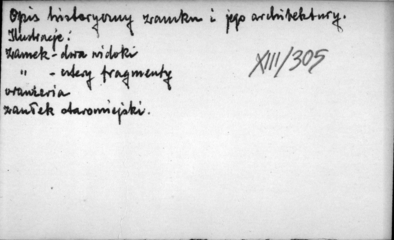 Opis historyczny zamku i jego architektury.
Ilustracje:
zamek - dwa widoki
" - cztery fragmenty
XIII/305
oranżeria
zaułek staromiejski.